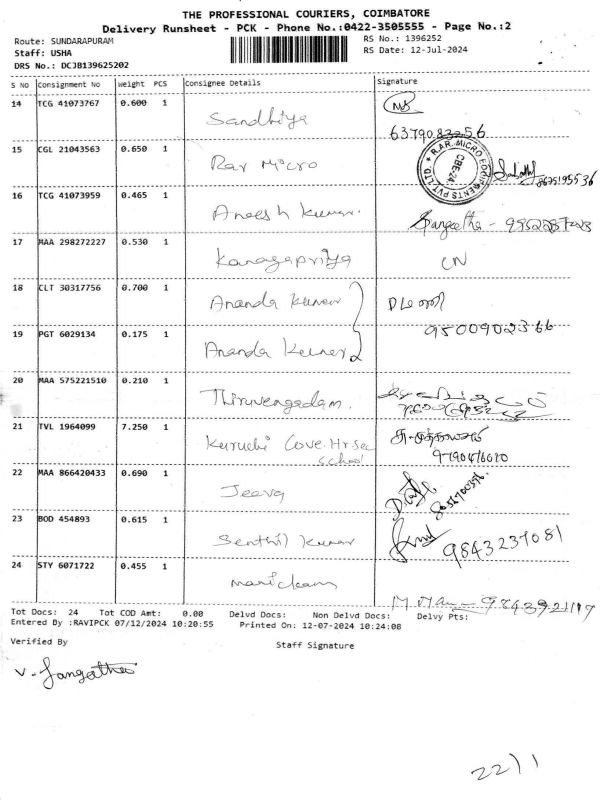 THE PROFESSIONAL COURIERS, COIMBATORE
Delivery Runsheet - PCK - Phone No.:0422-3505555 - Page No.:2
Route: SUNDARAPURAM RS No.: 1396252
Staff: USHA RS Date: 12-Jul-2024
DRS No.: DCJB139625202
S No Consignment No Weight PCS Consignee Details Signature
14 TCG 41073767 0.600 1
Sandhiya
6379083256
15 CGL 21043563 0.650 1
Rar Micro R.A.R. MICRO EQUIPMENTS PVT. LTD. CBE-24 8675195536
16 TCG 41073959 0.465 1
Aneesh kumar. Sangeetha -
17 MAA 298272227 0.530 1
Kanagapriya CN
18 CLT 30317756 0.700 1
Ananda kumar
9500902366
19 PGT 6029134 0.175 1
Ananda Kumar
20 MAA 575221510 0.210 1
Thiruvengadam.
21 TVL 1964099 7.250 1
Kuruchi Gove. Hr Sec
School
22 MAA 866420433 0.690 1
Jeeva
23 BOD 454893 0.615 1
Senthil kumar 9843237081
24 STY 6071722 0.455 1
manickam
M. Mani - 9843921119
Tot Docs: 24 Tot COD Amt: 0.00 Delvd Docs: Non Delvd Docs: Delvy Pts:
Entered By :RAVIPCK 07/12/2024 10:20:55 Printed On: 12-07-2024 10:24:08
Verified By Staff Signature
V. Sangeetha
22/1